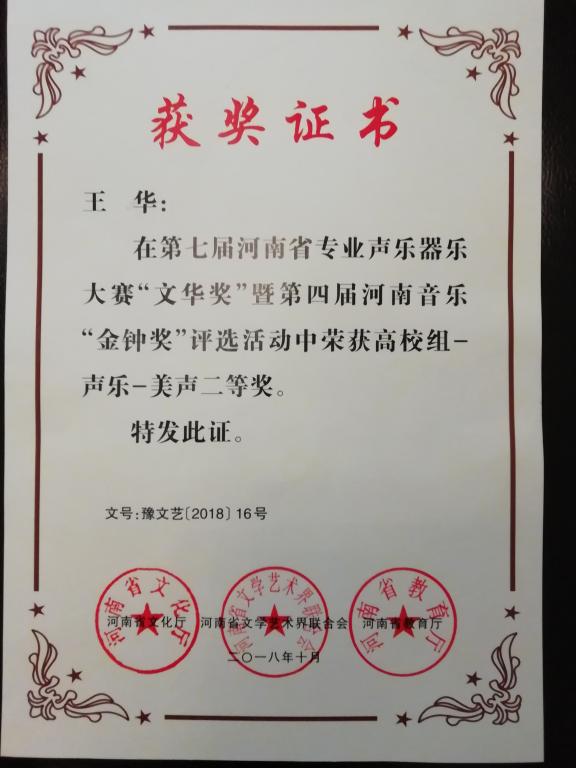 获奖证书
王 华：
在第七届河南省专业声乐器乐
大赛“文华奖”暨第四届河南音乐
“金钟奖”评选活动中荣获高校组-
声乐-美声二等奖。
特发此证。
文号：豫文艺〔2018〕16号
河南省文化厅
河南省文学艺术界联合会
河南省教育厅
河南省文化厅 河南省文学艺术界联合会 河南省教育厅
二〇一八年十月